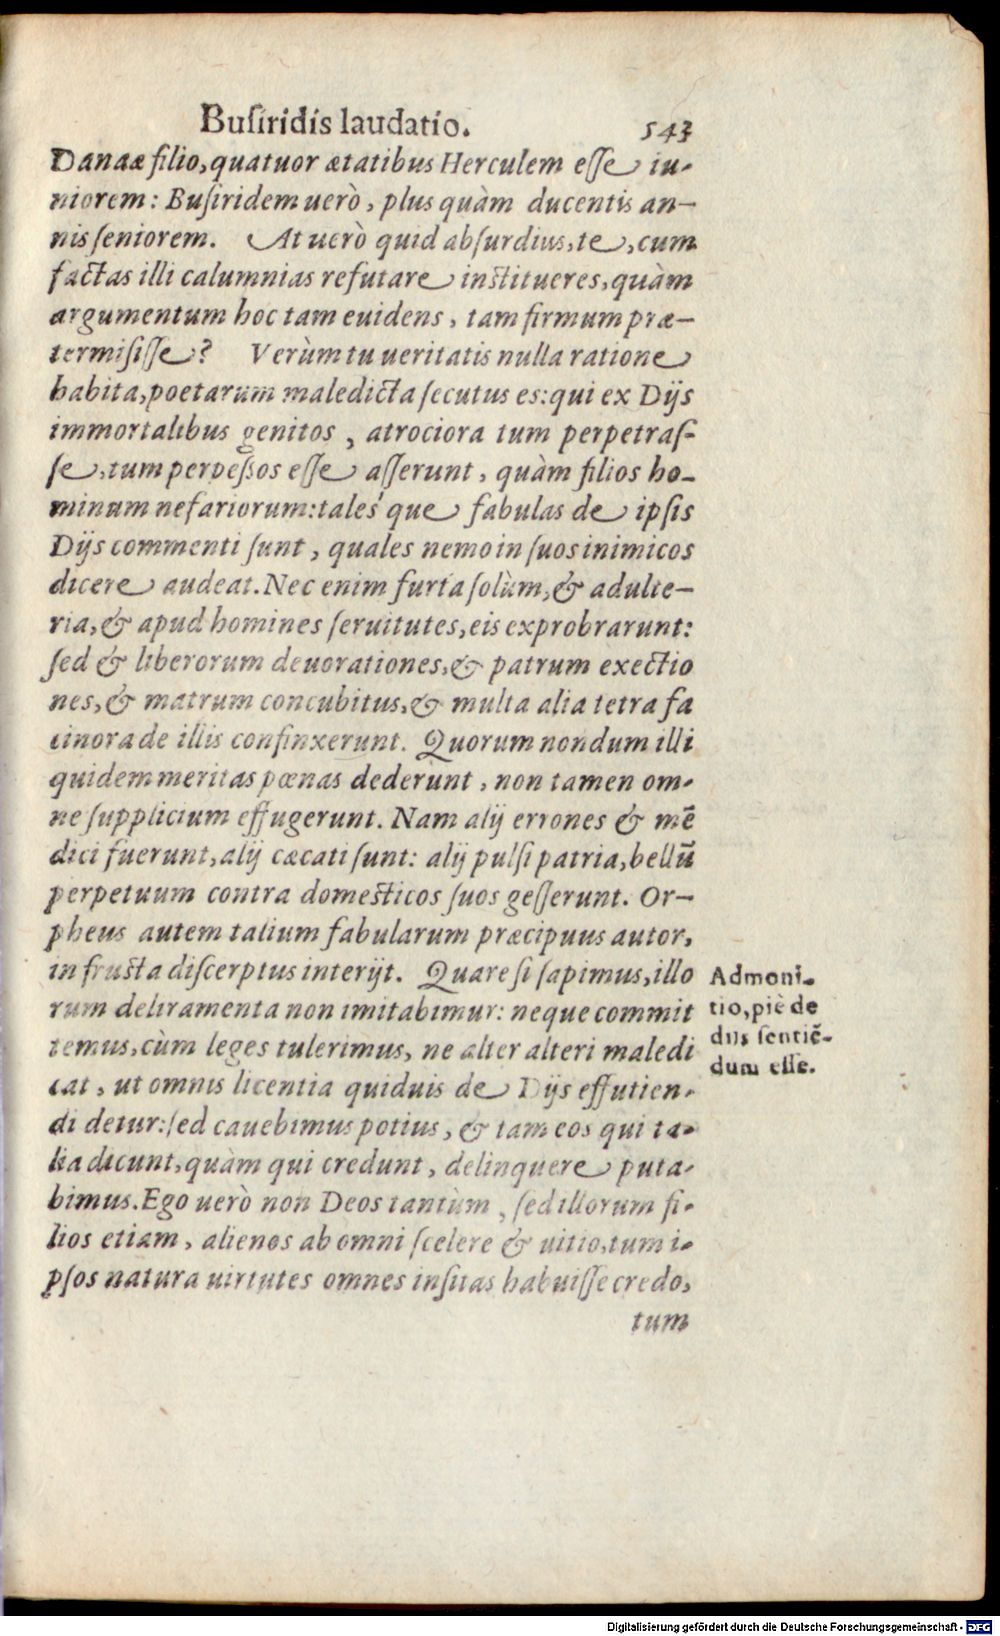 Buſiridis laudatio. 543
Danaæ filio, quatuor ætatibus Herculem eſſe iu-
niorem: Buſiridem uerò, plus quàm ducentis an-
nis ſeniorem. At uerò quid abſurdius, te, cum
factas illi calumnias refutare institueres, quàm
argumentum hoc tam euidens, tam firmum præ-
termiſiſſe? Verùm tu ueritatis nulla ratione
habita, poetarum maledicta ſecutus es: qui ex Dijs
immortalibus genitos, atrociora tum perpetraſ-
ſe, tum perpeſsos eſſe aſſerunt, quàm filios ho-
minum nefariorum: taleś que fabulas de ipſis
Dijs commenti ſunt, quales nemo in ſuos inimicos
dicere audeat. Nec enim furta ſolùm, & adulte-
ria, & apud homines ſeruitutes, eis exprobrarunt:
ſed & liberorum deuorationes, & patrum exectio
nes, & matrum concubitus, & multa alia tetra fa
cinora de illis confinxerunt. Quorum nondum illi
quidem meritas pœnas dederunt, non tamen om-
ne ſupplicium effugerunt. Nam alij errones & mẽ
dici fuerunt, alij cæcati ſunt: alij pulſi patria, bellũ
perpetuum contra domesticos ſuos geſſerunt. Or-
pheus autem talium fabularum præcipuus autor,
in frusta diſcerptus interijt. Quare ſi ſapimus, illo
rum deliramenta non imitabimur: neque commit
temus, cùm leges tulerimus, ne alter alteri maledi
cat, ut omnis licentia quiduis de Dijs effutien-
di detur: ſed cauebimus potius, & tam eos qui ta-
lia dicunt, quàm qui credunt, delinquere puta-
bimus. Ego uerò non Deos tantùm, ſed illorum fi-
lios etiam, alienos ab omni ſcelere & uitio, tum i-
pſos natura uirtutes omnes inſitas habuiſſe credo,
tum
Admoni-
tio, piè de
diis ſentiẽ-
dum eſſe.
Digitalisierung gefördert durch die Deutsche Forschungsgemeinschaft - DFG